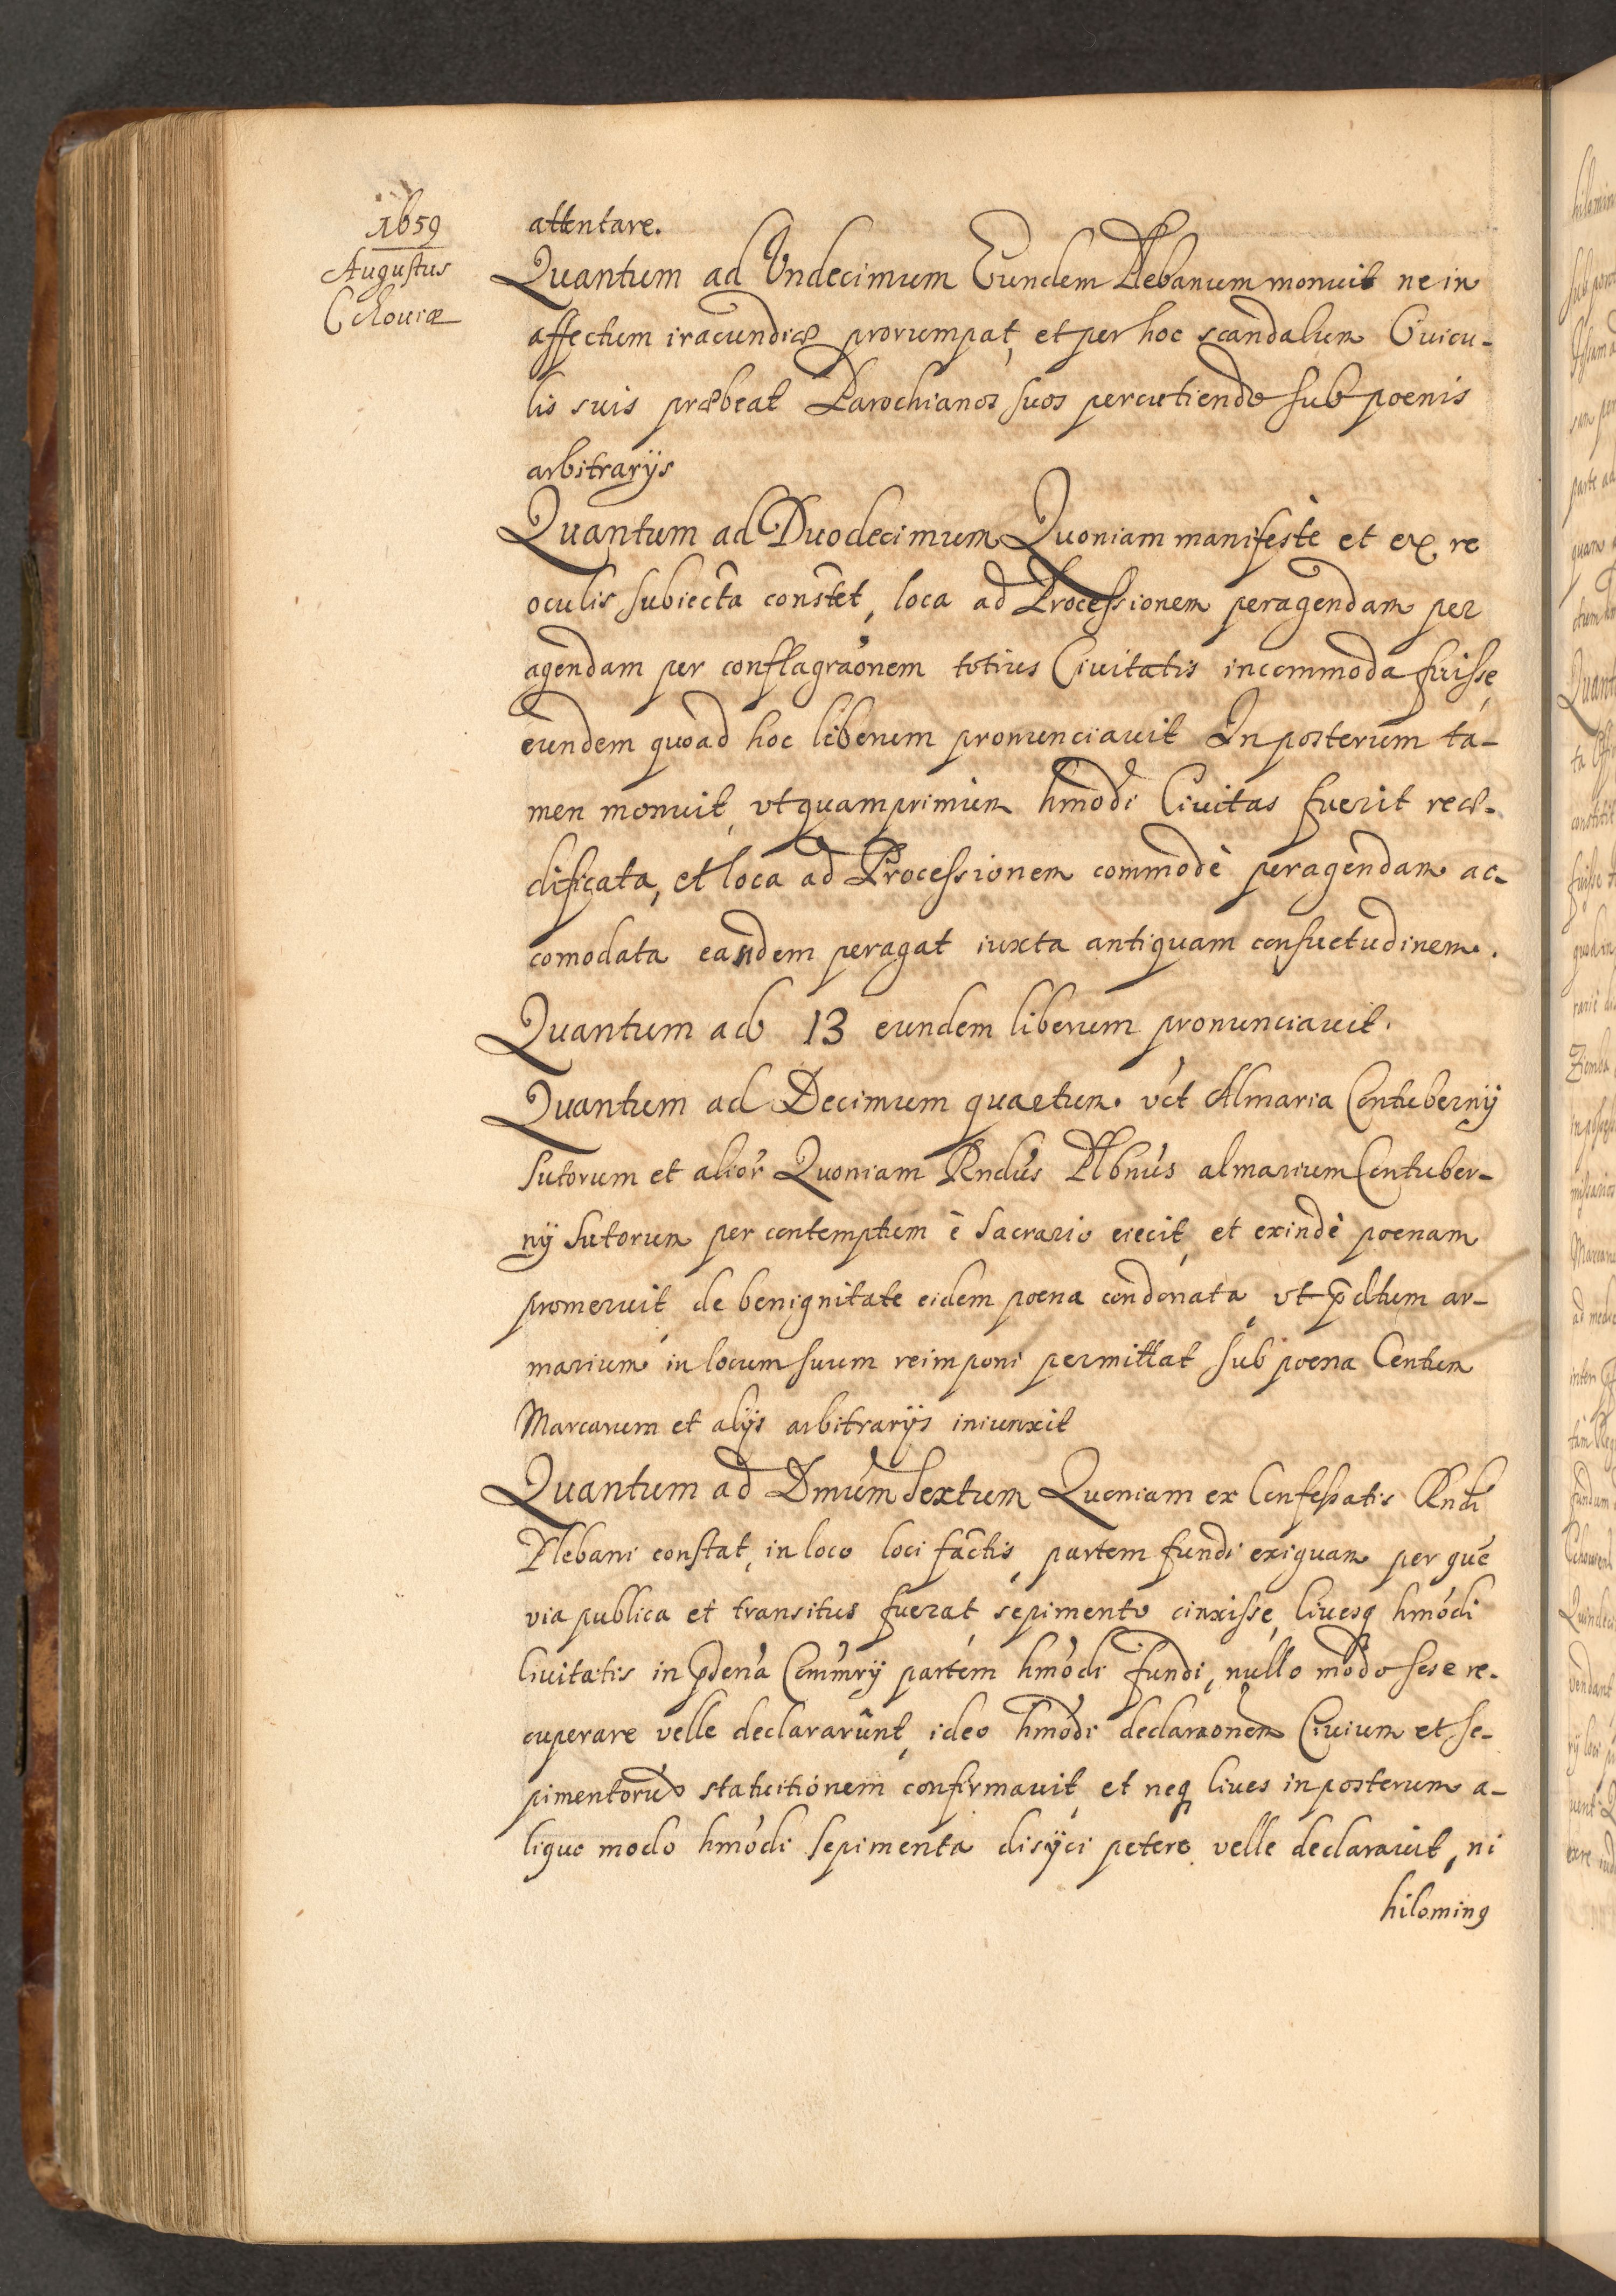 1659
Augustus
Cchouiæ
attentare.
Quantum ad Vndecimum Eundem Plebanum monuit ne in
affectum iracundiæ prorumpat, et per hoc scandalum Ouicu-
lis suis præbeat Parochianos suos percutiendo sub poenis
arbitrarÿs
Quantum ad Duodecimum Quoniam manifestè et ex re
oculis subiecta constet, loca ad Processionem peragendam per
agendam per conflagraõnem totius Ciuitatis incommoda fuisse,
eundem quoad hoc liberum pronunciauit In posterum ta-
men monuit, vt quamprimum hmodi Ciuitas fuerit reæ-
dificata, et loca ad Processionem commodè peragendam ac-
comodata eandem peragat iuxta antiquam consuetudinem.
Quantum ad 13 eundem liberum pronunciauit.
Quantum ad Decimum quartum vct Almaria Contubernÿ
Sutorum et alior Quoniam Rndus Plbnus almarium Contuber-
nÿ Sutorum per contemptum è Sacrario eiecit, et exindè poenam
promeruit, de benignitate eidem poena condonata, vt pdtum ar-
marium in locum suum reimponi permittat sub poena Centum
Marcarum et alÿs arbitrarÿs iniunxit
Quantum ad Dmum Sextum Quoniam ex Confessatis Rndi
Plebani constat, in loco loci factis, partem fundi exiguam per quē
via publica et transitus fuerat, sepimento cinxisse, Ciuesq hmodi
Ciuitatis in pdena Commrÿ partem hmodi fundi, nullo modo sese re-
cuperare velle declararunt, ideo hmodi declaraonem Ciuium et se-
pimentorū statuitionem confirmauit, et neq Ciues in posterum a-
liquo modo hmodi sepimenta disÿci petere velle declarauit, ni
hiloming